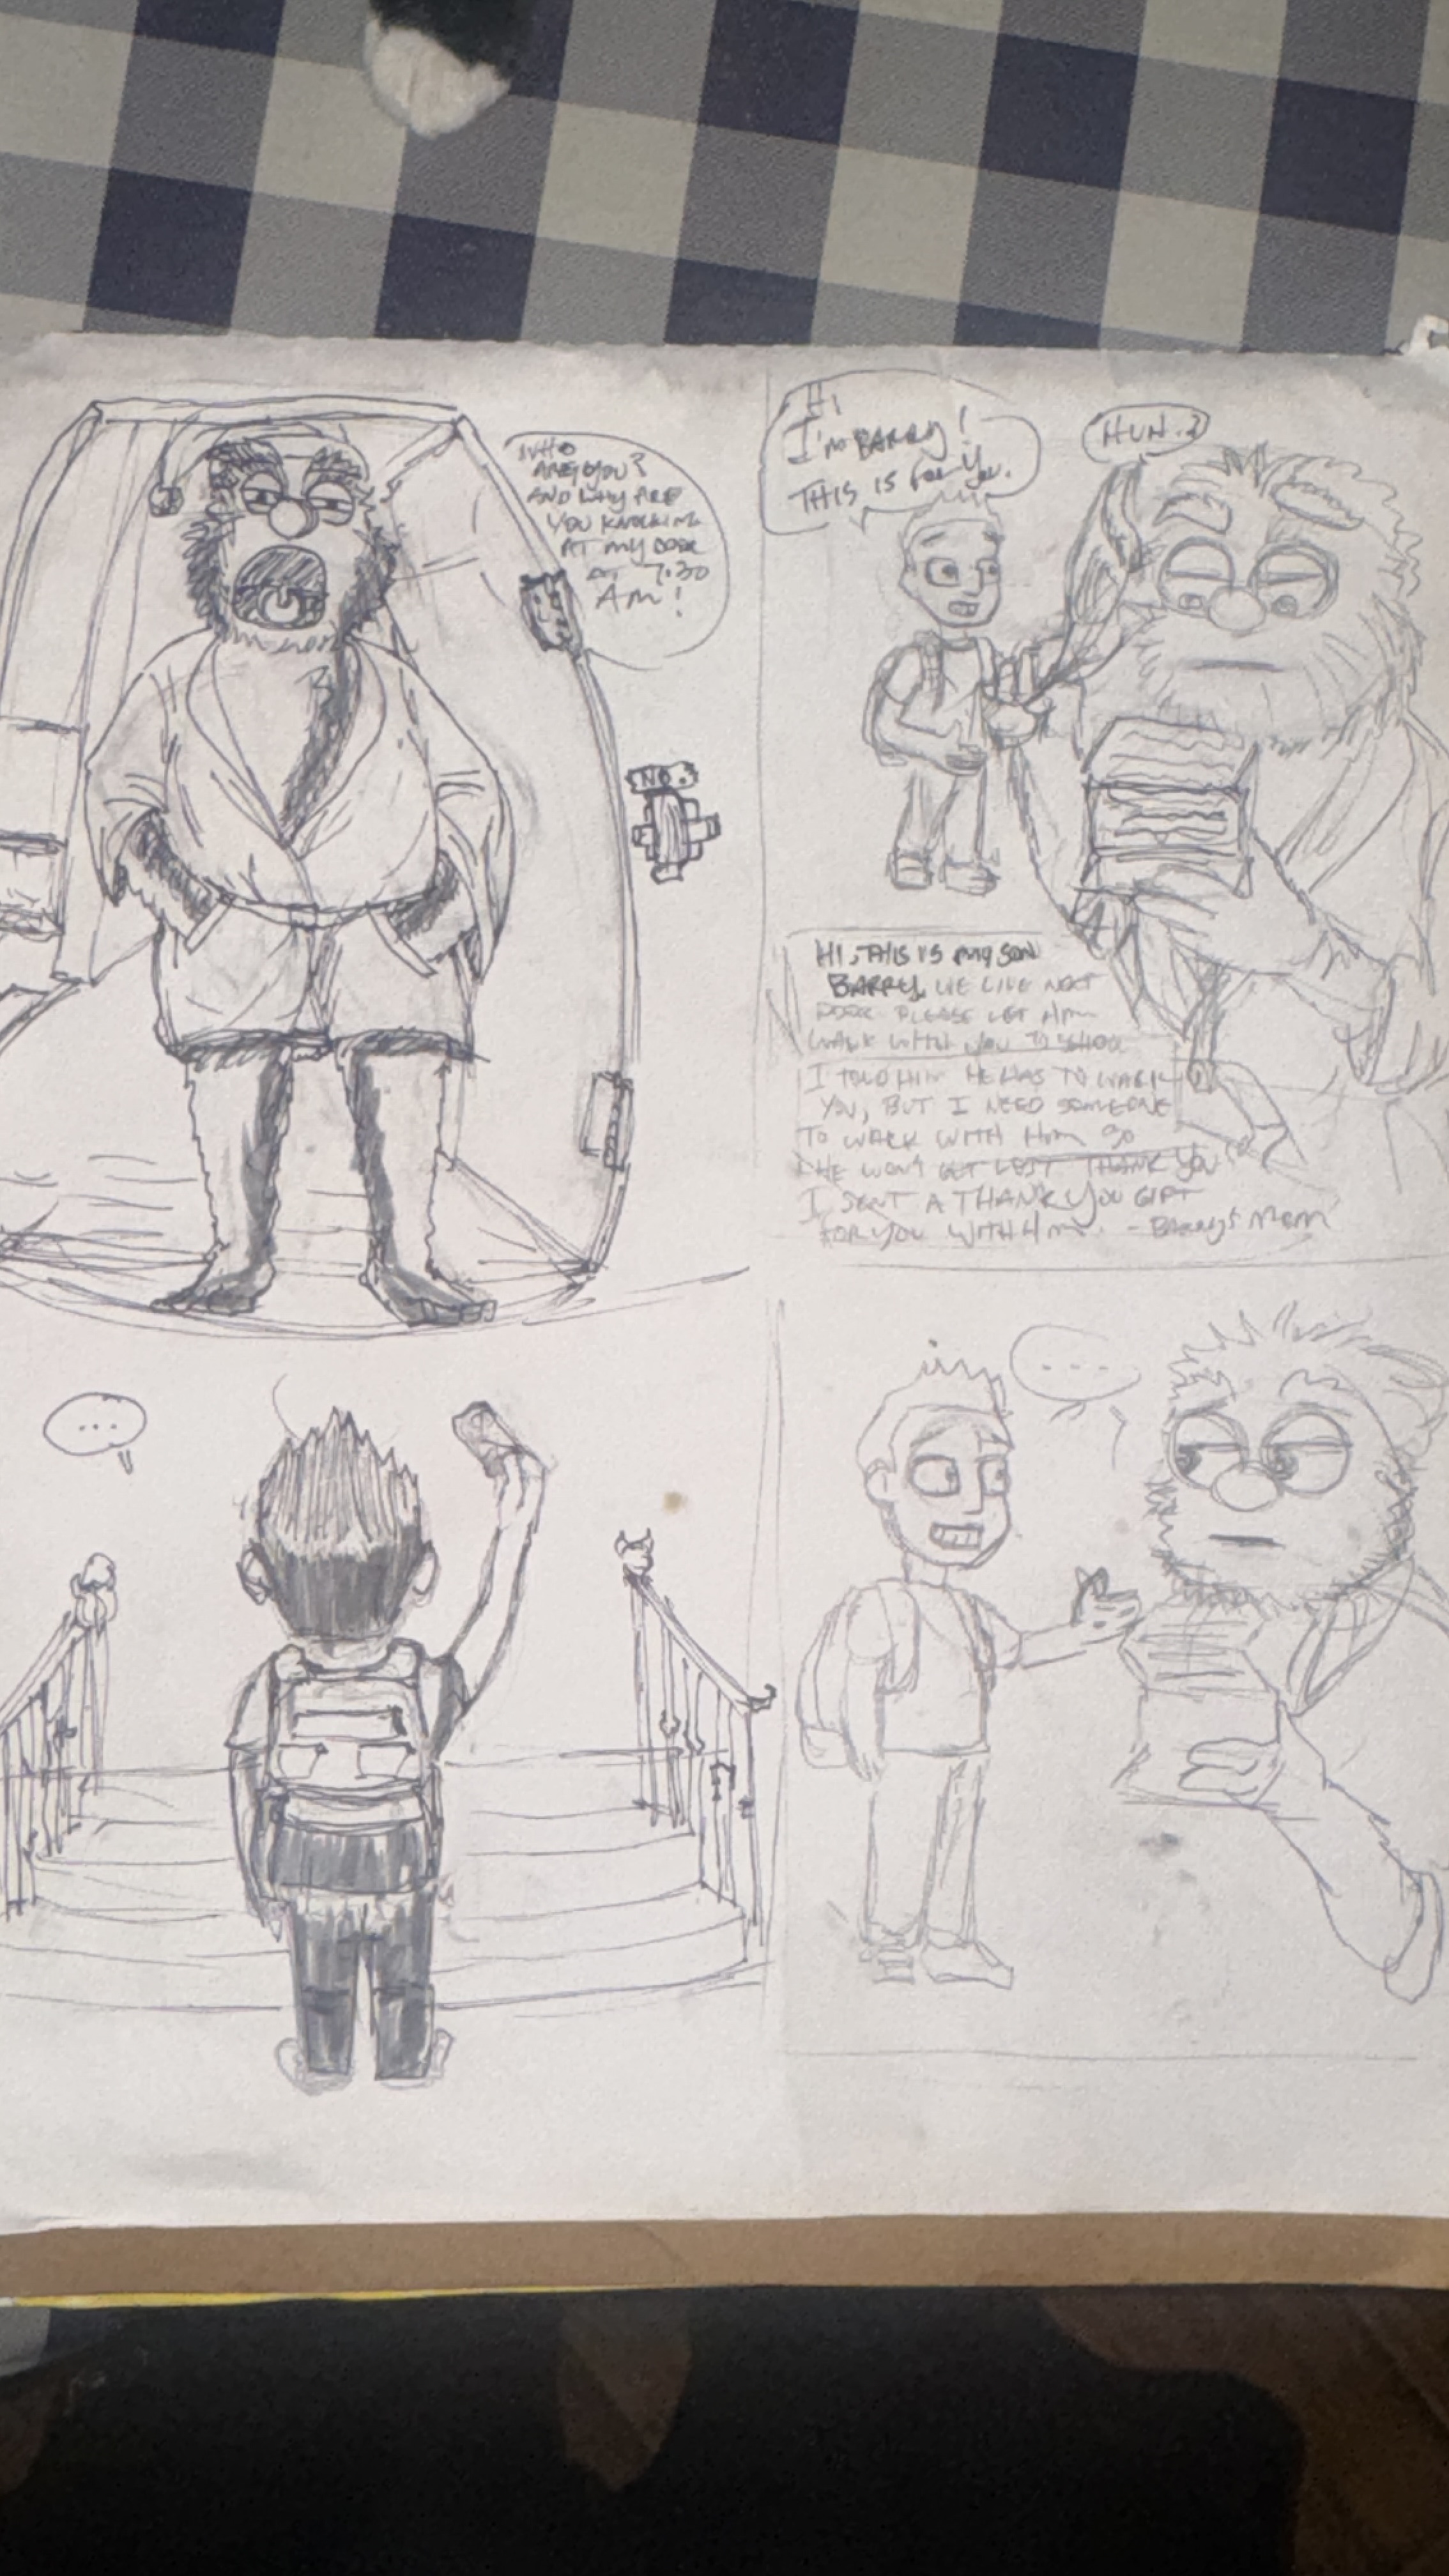 WHO
ARE YOU?
AND WHY ARE
YOU KNOCKING
AT MY DOOR
AT 7:30
AM!
NO.
HI,
I'm BARRY!
THIS IS FOR YOU.
HUH?
HI, THIS IS MY SON
BARRY, WE LIVE NEXT
DOOR PLEASE LET HIM
WALK WITH YOU TO SCHOOL
I TOLD HIM HE HAS TO WALK
YOU, BUT I NEED SOMEONE
TO WALK WITH HIM SO
HE WON'T GET LOST THANK YOU
I SENT A THANK YOU GIFT
FOR YOU WITH HIM. - BARRY'S MOM
...
...